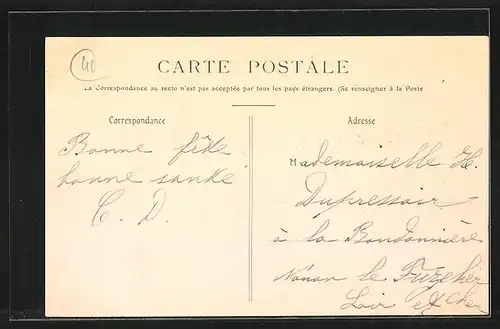 40
CARTE POSTALE
La Correspondance au recto n'est pas acceptée par tous les pays étrangers. (Se renseigner à la Poste
Correspondance
Adresse
Bonne fête
bonne santé
C. D.
Mademoiselle H.
Dupressoir
à la Bondonnière
Nouan le Fuzelier
Loir et Cher